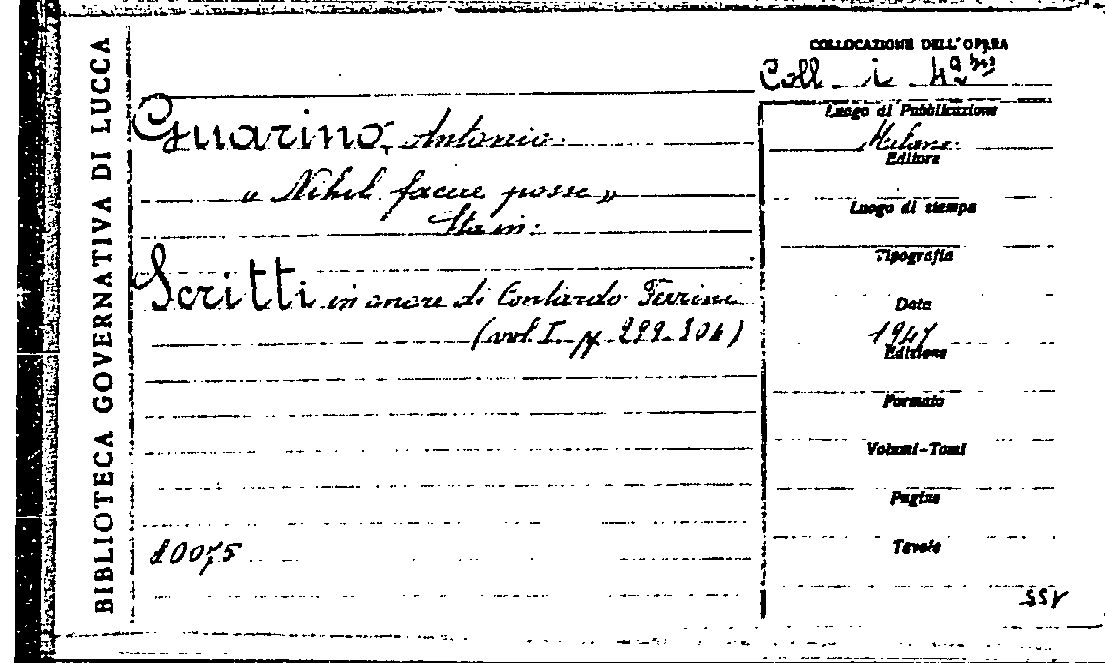 BIBLIOTECA GOVERNATIVA DI LUCCA
COLLOCAZIONE DELL'OPERA
Coll. i
Guarino, Antonio
Luogo di Pubblicazione
Milano
« Nihil facere posse »
Editore
Sta in:
Luogo di stampa
Tipografia
Scritti in onore di Contardo Ferrini
Data
(vol. I. pp. 299-304)
1947
Edizione
Formato
Volumi-Tomi
Pagine
Tavole
10075